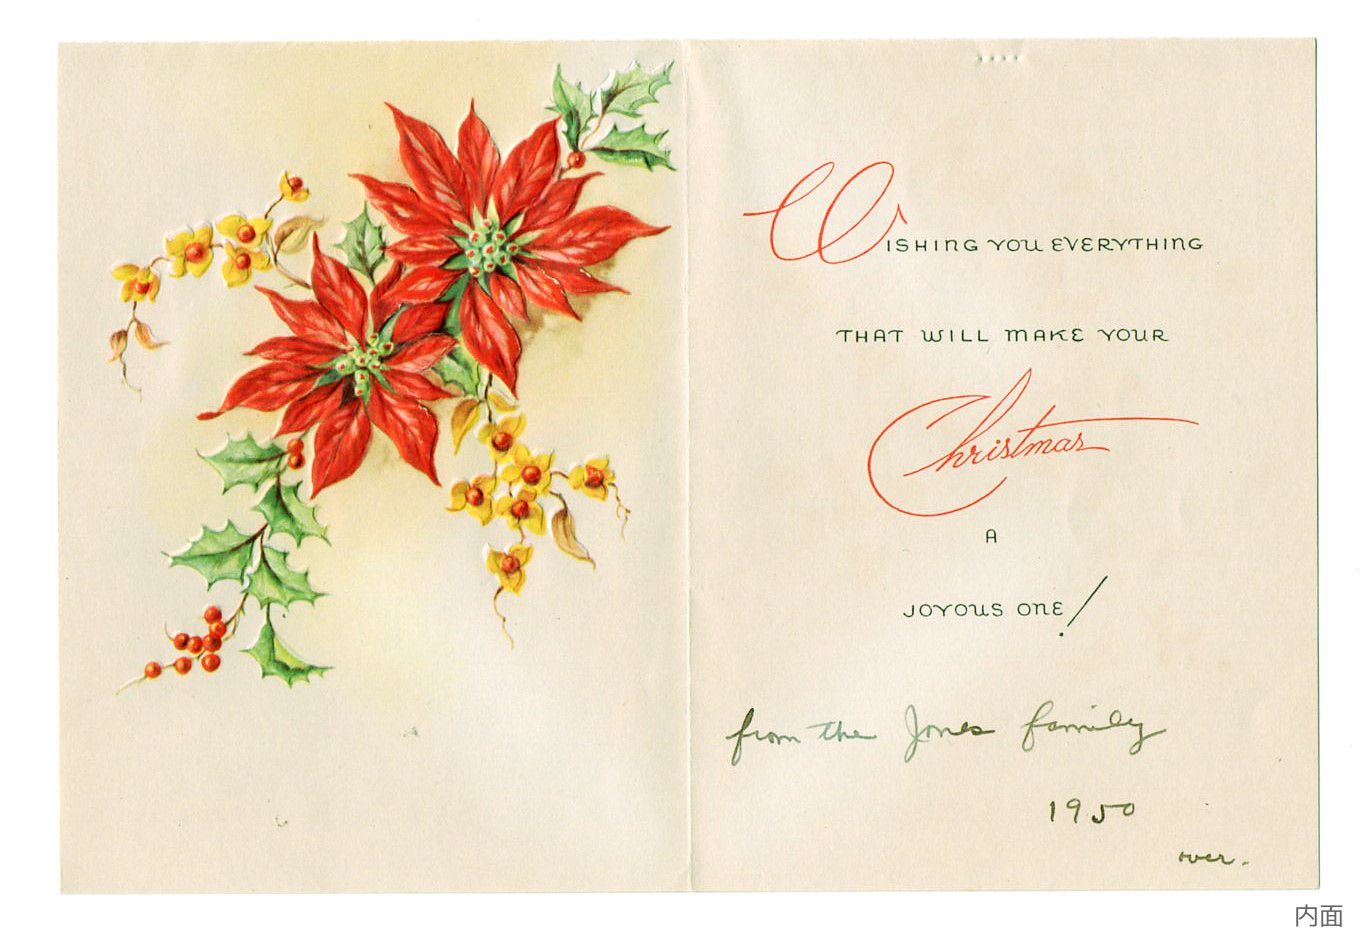 WISHING YOU EVERYTHING
THAT WILL MAKE YOUR
Christmas
A
JOYOUS ONE!
from the Jones family
1950
over.
内面